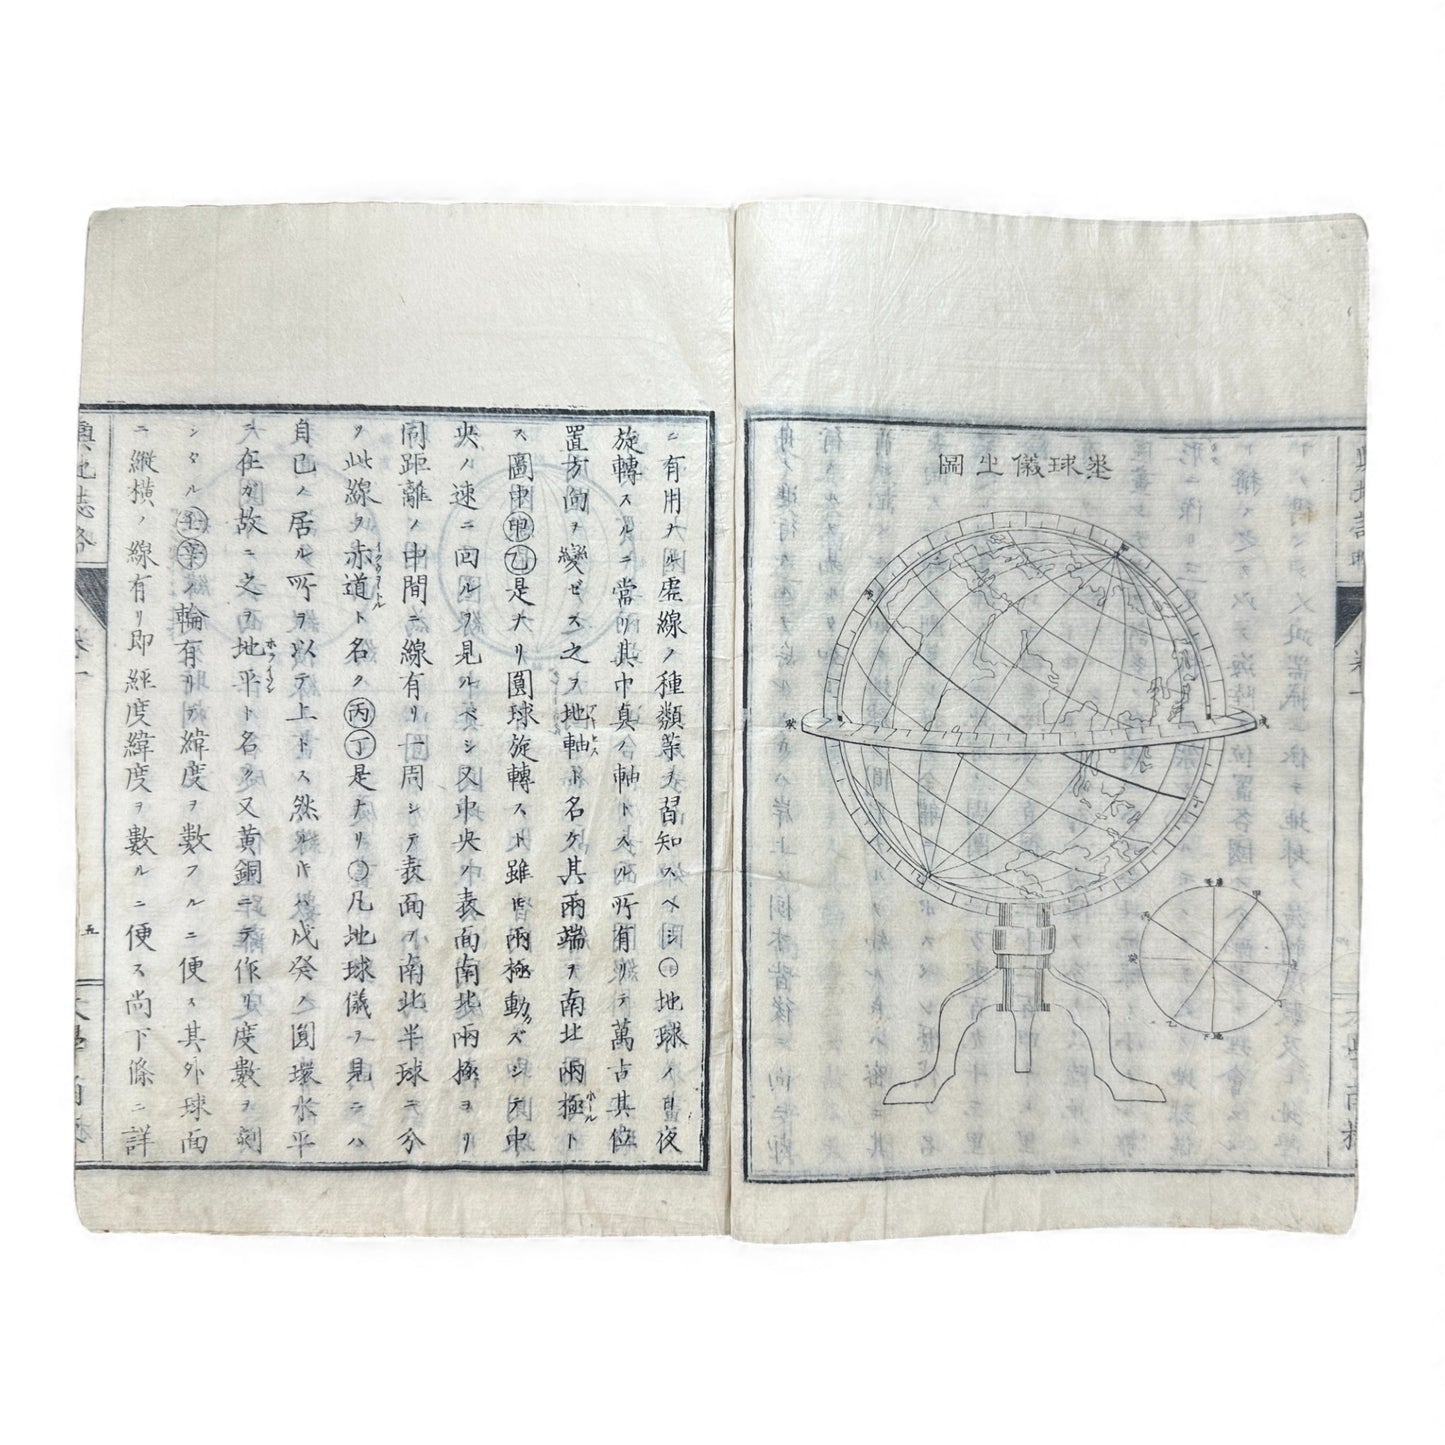 輿地誌略
卷一
大學南校
圖之儀球地
甲
戊
癸
ニ有用ナル虚線ノ種類等ヲ習知スベシ○地球ノ日夜
旋轉スルニ當リ其中眞ノ軸トスル所有リテ萬古其位
置方向ヲ變ゼス之ヲ地軸ト名ケ其兩端ヲ南北兩極ト
ス圖中甲乙是ナリ圓球旋轉スト雖𪜈兩極動カズシテ中
央ノ速ニ回ルヲ見ルベシ又中央ノ表面南北兩極ヨリ
同距離ノ中間ニ線有リ一周シテ表面ヲ南北半球ニ分
ツ此線ヲ赤道ト名ク丙丁是ナリ○凡地球儀ヲ見ニハ
自己ノ居ル所ヲ以テ上トス然ル𪜈ハ戊癸ノ圓環水平
ニ在ガ故ニ之ヲ地平ト名ク又黄銅ニテ作リ度數ヲ刻
シタル壬辛輪有リテ緯度ヲ數フルニ便ス其外球面
ニ縱横ノ線有リ即經度緯度ヲ數ルニ便ス尚下條ニ詳
輿地誌略
卷一
五
大學南校